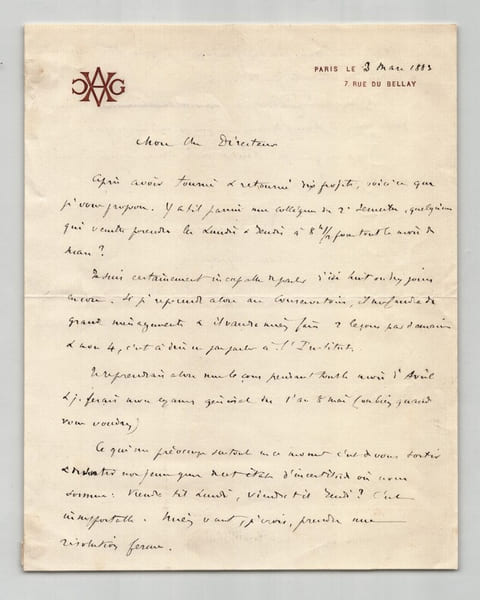 CAG
PARIS LE 3 Mars 1883
7, RUE DU BELLAY
Mon cher Directeur
Après avoir tourné & retourné dix projets, voici ce que
je vous propose. Y a t il parmi mes collègues du 2e Semestre, quelqu'un
qui veuille prendre les Lundis & Jeudis à 8h 1/2 pour tout le mois de
Mars ?
Je suis certainement incapable de parler d'ici huit ou dix jours
encore. Si je reprends alors au Conservatoire, il me faudra de
grands ménagements & il vaudra mieux faire 2 leçons par semaine
& non 4, c'est à dire ne pas parler à l'Institut.
Je reprendrais alors mes leçons pendant tout le mois d'Avril
& je ferais mon examen général du 1er au 8 mai (ou bien quand
vous voudrez)
Ce qui me préoccupe surtout en ce moment c'est de vous sortir
& de sortir nos jeunes gens de cet état d'incertitude où nous
sommes : Viendra t il Lundi, viendra t il Jeudi ? C'est
insupportable. Mieux vaut, je crois, prendre une
résolution ferme.